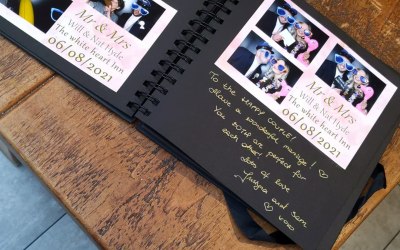 Mr & Mrs
Will & Nat Hyde
The white heart Inn
06/08/2021
Mr & Mrs
Will & Nat Hyde
The white heart Inn
06/08/2021
To the HAPPY COUPLE!
Have a wonderful marriage! ♡
You BOTH are perfect for
each other!
lots of love
and Sam
♡ xoxo